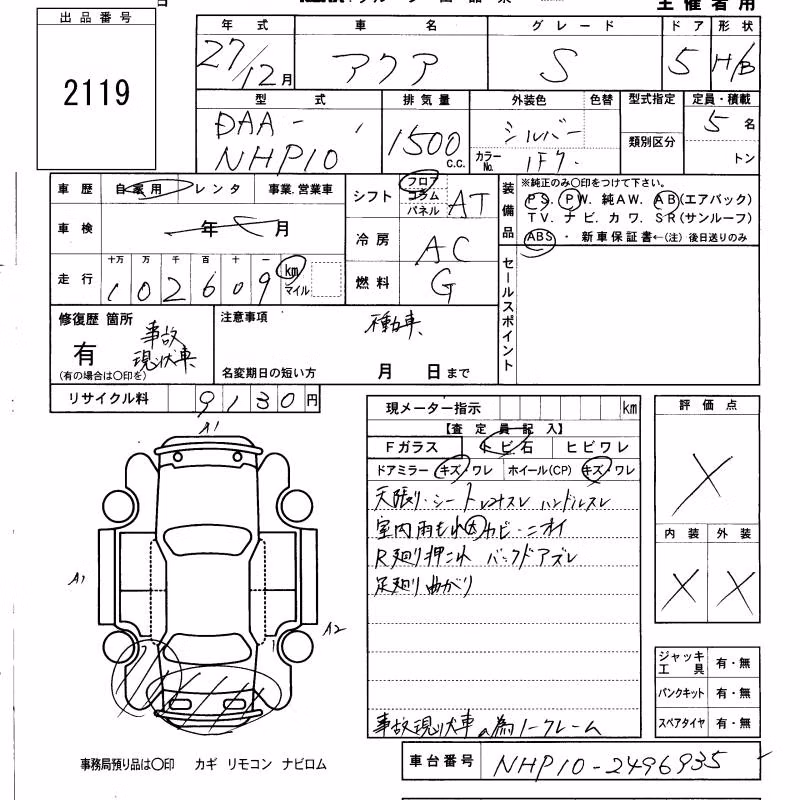 主催者用
出品番号
2119
年式 車名 グレード ドア 形状
27/12月 アクア S 5 H/B
型式 排気量 外装色 色替 型式指定 定員・積載
DAA-
NHP10
1500 c.c.
シルバー
カラーNo. 1F7
類別区分
5名
トン
車歴 自家用 レンタ 事業.営業車
車検 年 月
走行 十万 万 千 百 十 一
102609 km マイル
シフト フロア コラム パネル AT
冷房 AC
燃料 G
装備品
※純正のみ〇印をつけて下さい。
PS. PW. 純AW. AB(エアバック)
TV. ナビ. カワ. SR(サンルーフ)
ABS ・ 新車保証書←(注) 後日送りのみ
セールスポイント
修復歴 箇所
有
事故
現状車
(有の場合は〇印を)
注意事項
不動車
名変期日の短い方 月 日まで
リサイクル料 9130円
現メーター指示 km
【査定員記入】
Fガラス トビ石 ヒビワレ
ドアミラー キズ・ワレ ホイール(CP) キズ・ワレ
天張り・シート ハンドルスレ
室内雨もれ因カビ・ニオイ
R廻り押され バックドアズレ
足廻り曲がり
事故現状車の為ノークレーム
評価点
×
内装 外装
× ×
ジャッキ工具 有・無
パンクキット 有・無
スペアタイヤ 有・無
A1
A1
A2
事務局預り品は〇印 カギ リモコン ナビロム
車台番号 NHP10-2496935